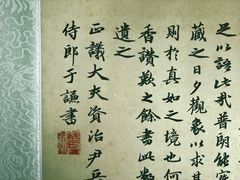 足以語此哉普朗能寶
藏之日夕觀象以求其
則於真如之境也何
香讚歎之餘書此數
遺之
正議大夫資治尹兵
侍郎于謙書